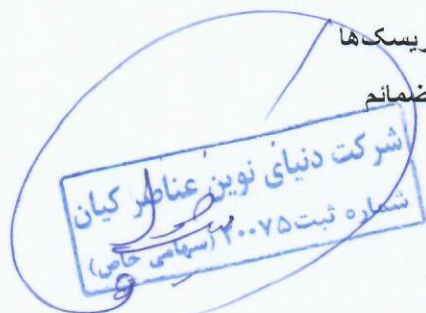 ریسک‌ها
ضمائم
شرکت دنیای نوین عناصر کیان
شماره ثبت ۲۰۰۷۵ (سهامی خاص)